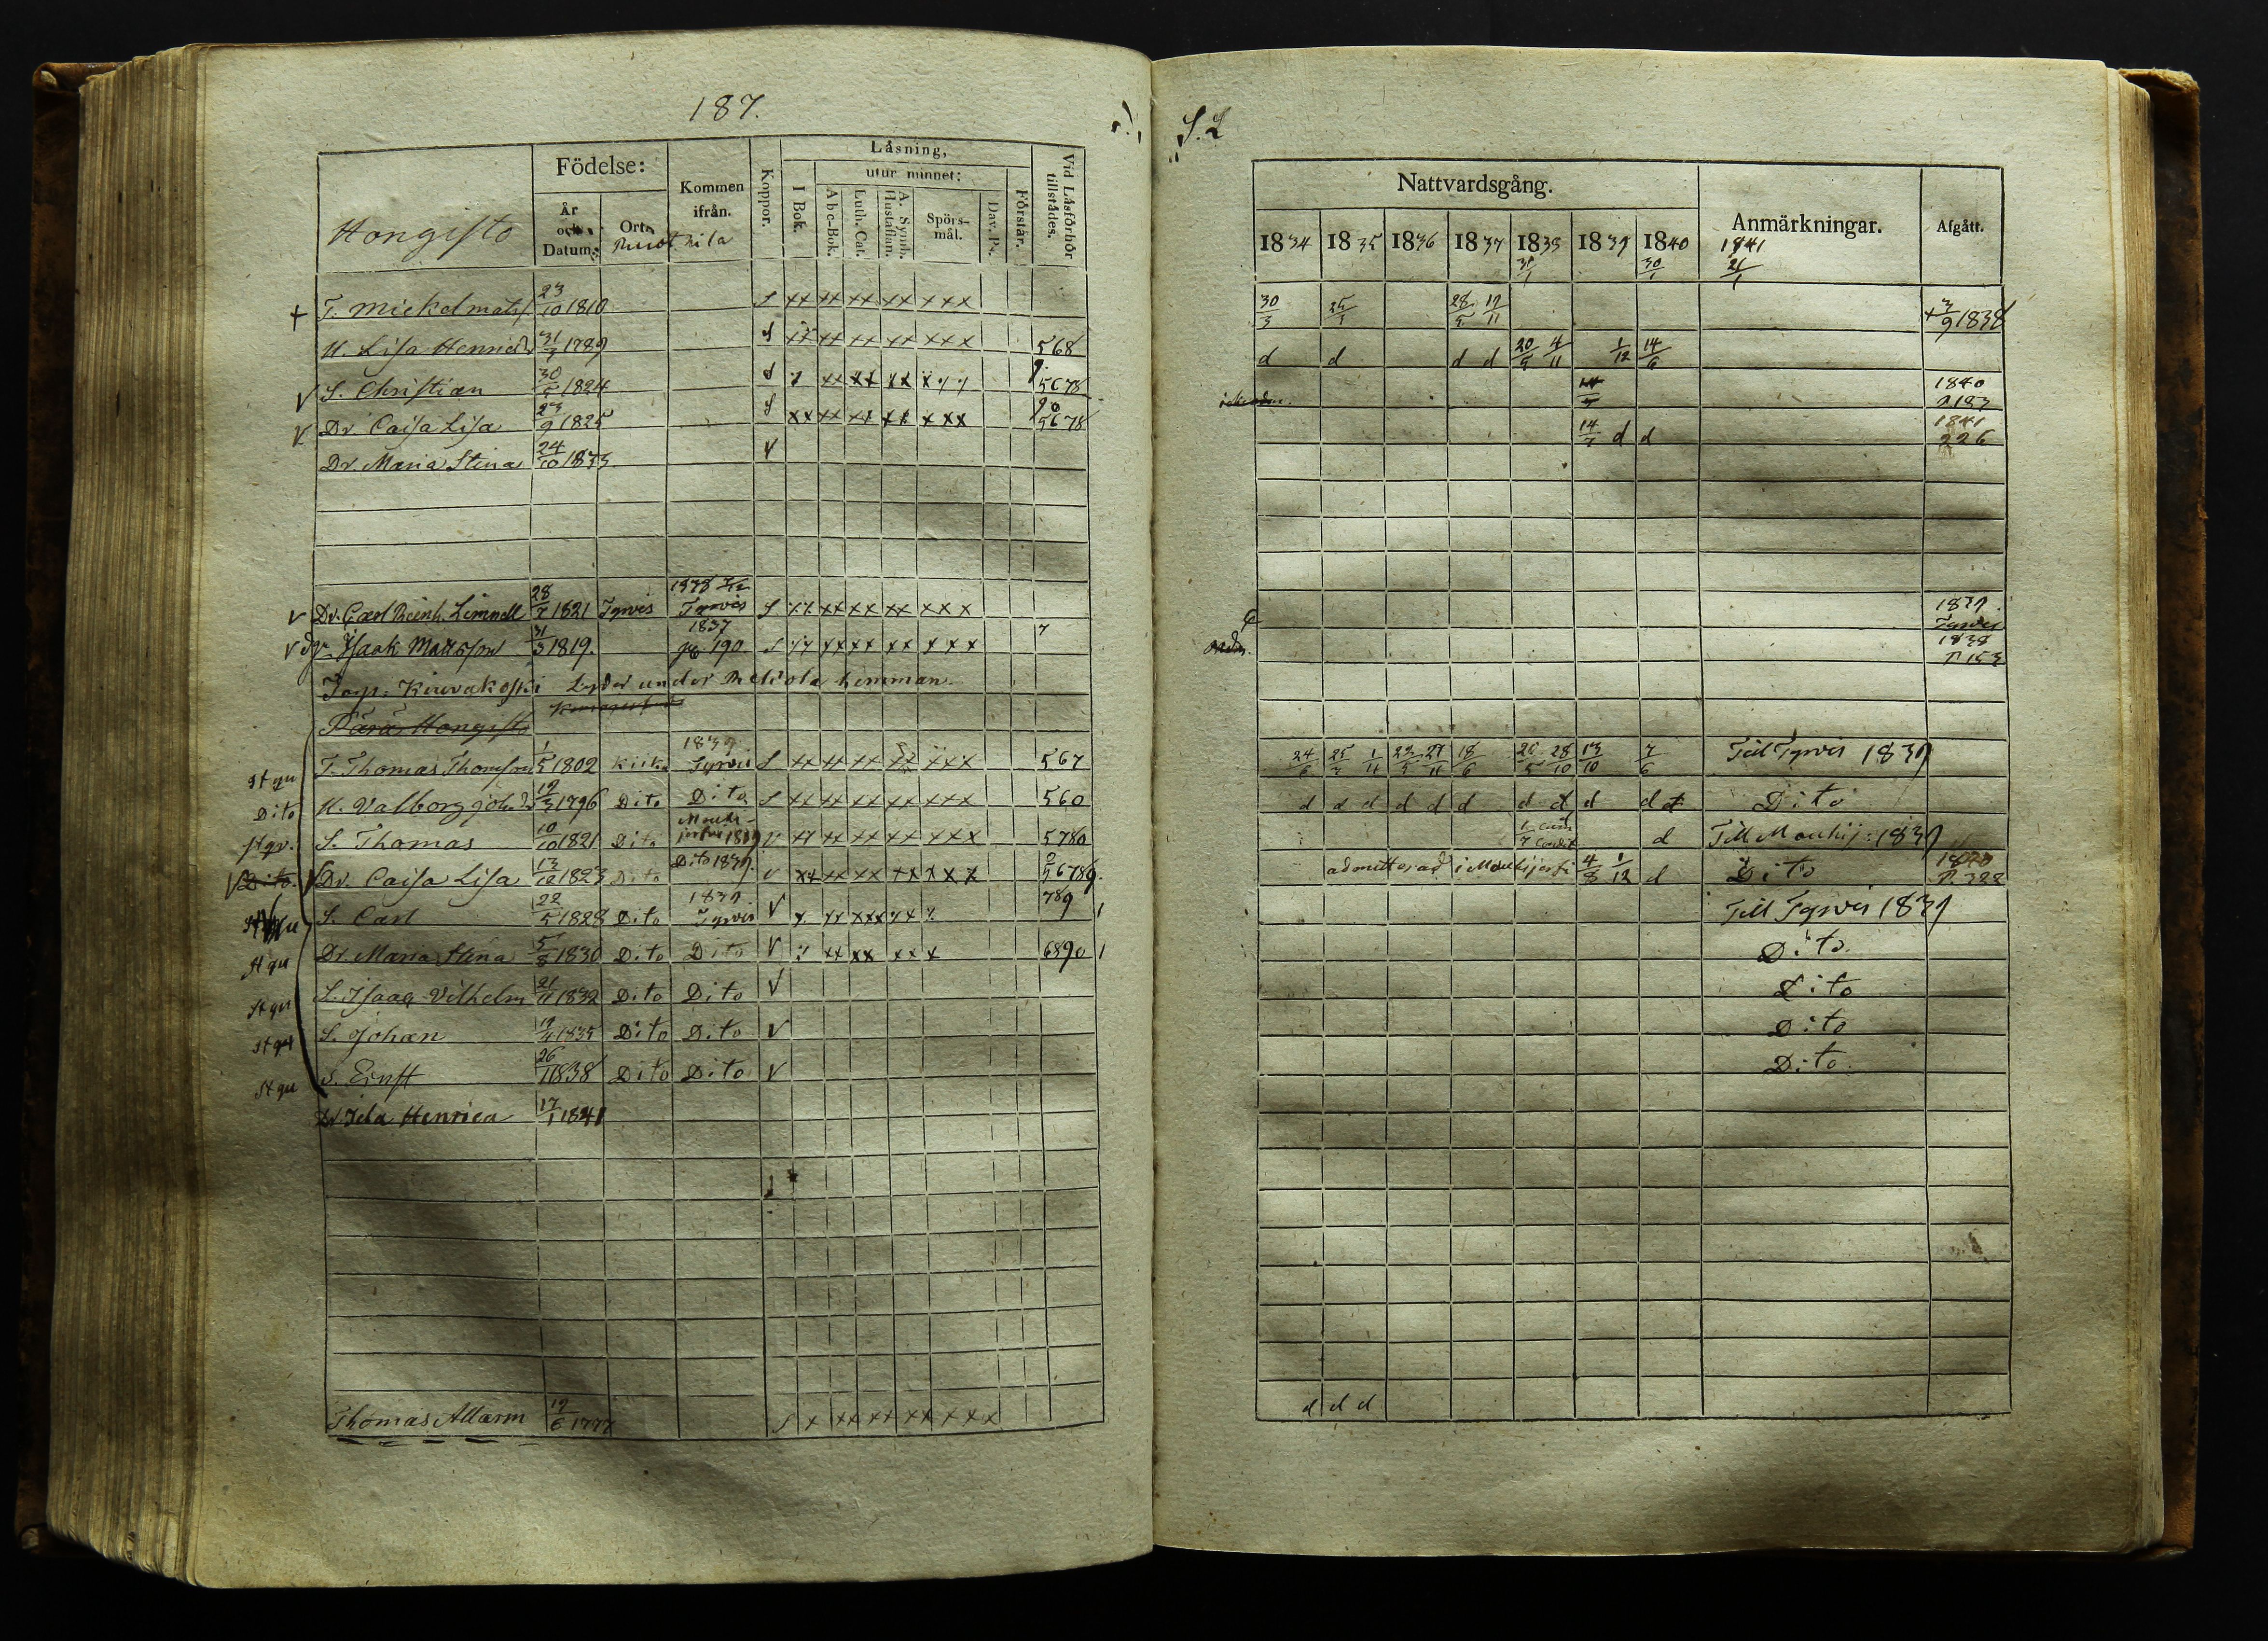 187.
Hongisto
Födelse:
År och Datum.
Ort.
Kommen ifrån.
Koppor.
Läsning,
utur minnet:
I Bok.
Abc-Bok.
Luth. Cat.
A. Symb. Hustaflan.
Spörsmål.
Dav. Ps.
Förstår.
Vid Läsförhör tillstädes.
+ T. Mickel Mats 23/10 1810 S xx xx xx xx xxx
H. Lisa Henrics 31/3 1789 S xx xx xx xx xxx 568
V S. Christian 30/5 1824 5678
V Dr. Caisa Lisa 23/9 1825 S xx xx xx xx xxx 5678
Dr. Maria Stina 24/10 1833 V
V Dr. Carl Reinh. Limnell 28/7 1821 Tyrvis 1838 Tyrvis S xx xx xx xx xxx
V dr Isaak Mattsson 31/3 1819. 1837 190 S xx xx xx xxx 7
Torp. Kiuvakoski Lyder under Retsola hemman
Pärä Hongisto
st qu T. Thomas Thomson 1/5 1802 Kiik 1839 Tyrvis S xx xx xx xx xxx 567
Dito H. Valborg Joh. 12/3 1796 Dito Dito S xx xx xx xx xxx 560
st qu. S. Thomas 10/10 1821 Dito 1839 V xx xx xx xx xxx 5780
V Dito. V Dr. Caisa Lisa 13/12 1823 Dito Dito 1839. V xx xx xx xx xxx 56789.
S. Carl 22/5 1828 Dito 1839 Tyrvis V 789 1
st qu Dr. Maria Stina 5/8 1830 Dito Dito V 6890 1
st qu S. Isaaq Vilhelm 21/11 1832 Dito Dito V
st qu S. Johan 19/4 1835 Dito Dito V
st qu S. Ernst 26/1 1838 Dito Dito V
Dr Ida Henrica 17/1 1841
Thomas Allarm 19/6 1777 S x xx xx xx xxx
S. L
Nattvardsgång.
Anmärkningar.
Afgått.
1834 1835 1836 1837 1838 1839 1840 1841
30/1 21/1
30/3 25/1 28/5 12/11 + 3/9 1838
d d d d 20/5 4/11 1/12 14/6
1840
p 183
14/7 d d 1841
226
1839.
Tyrvis
1838
p 153
24/6 25/7 1/11 22/5 27/11 18/6 20/5 28/10 13/10 7/6 Till Tyrvis 1839
d d d d d d d d d d d Dito
1/7 d Till Mouhij: 1839
admitterad i Mouhijerfi 4/8 1/12 d Dito 1840
p. 322
Till Tyrvis 1839
Dito.
Dito
Dito
Dito.
d d d